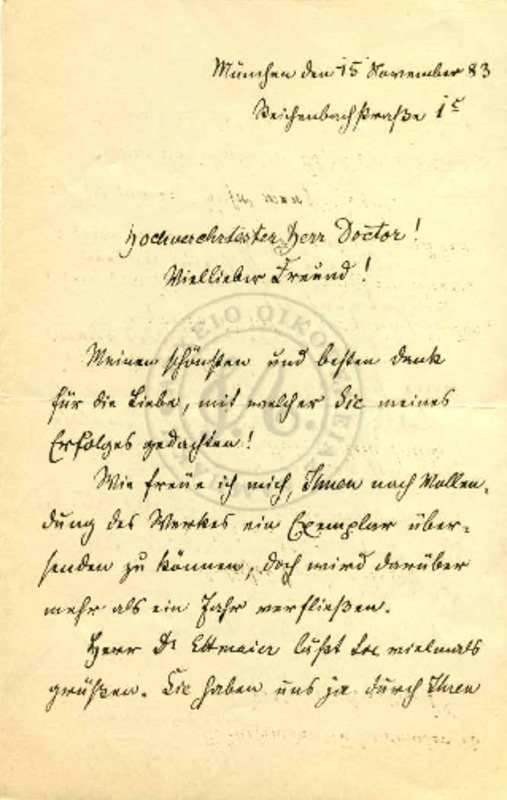 München den 15 November 83
Reichenbachstraße 1c
Hochverehrtester Herr Doctor!
Viellieber Freund!
Meinen schönsten und besten Dank
für die Liebe, mit welcher Sie meines
Erfolges gedachten!
Wie freue ich mich, Ihnen nach Vollen-
dung des Werkes ein Exemplar über-
senden zu können, doch wird darüber
mehr als ein Jahr verfließen.
Herr Dr Ettmaier läßt Sie vielmals
grüßen. Sie haben uns ja durch Ihren